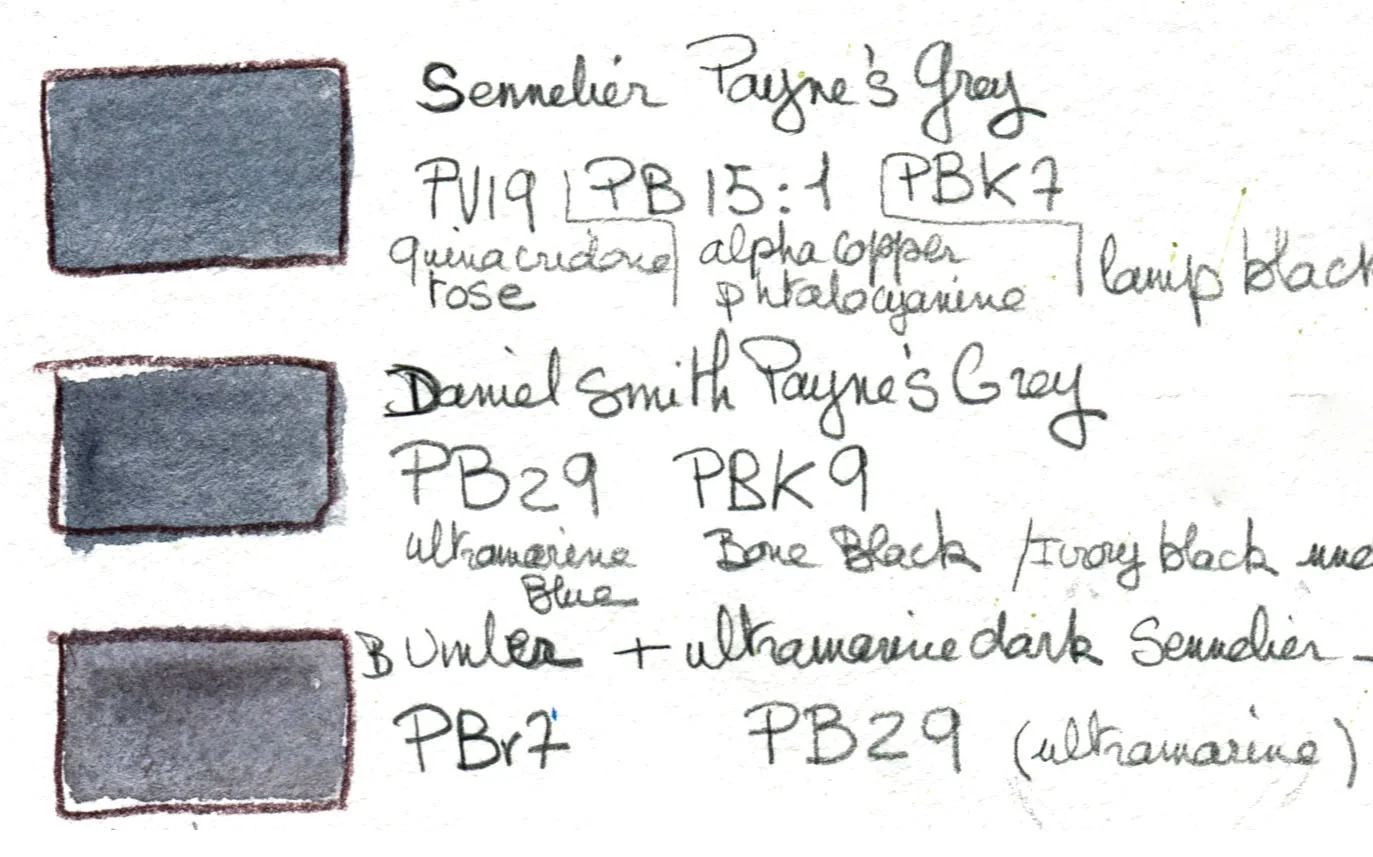 Sennelier Payne's Grey
PV19 PB 15:1 PBK7
quinacridone alpha copper lamp black
rose phtalocyanine
Daniel Smith Payne's Grey
PB29 PBK9
ultramarine Bone Black /Ivory black
Blue
B Umber + ultramarine dark Sennelier -
PBr7 PB29 (ultramarine)